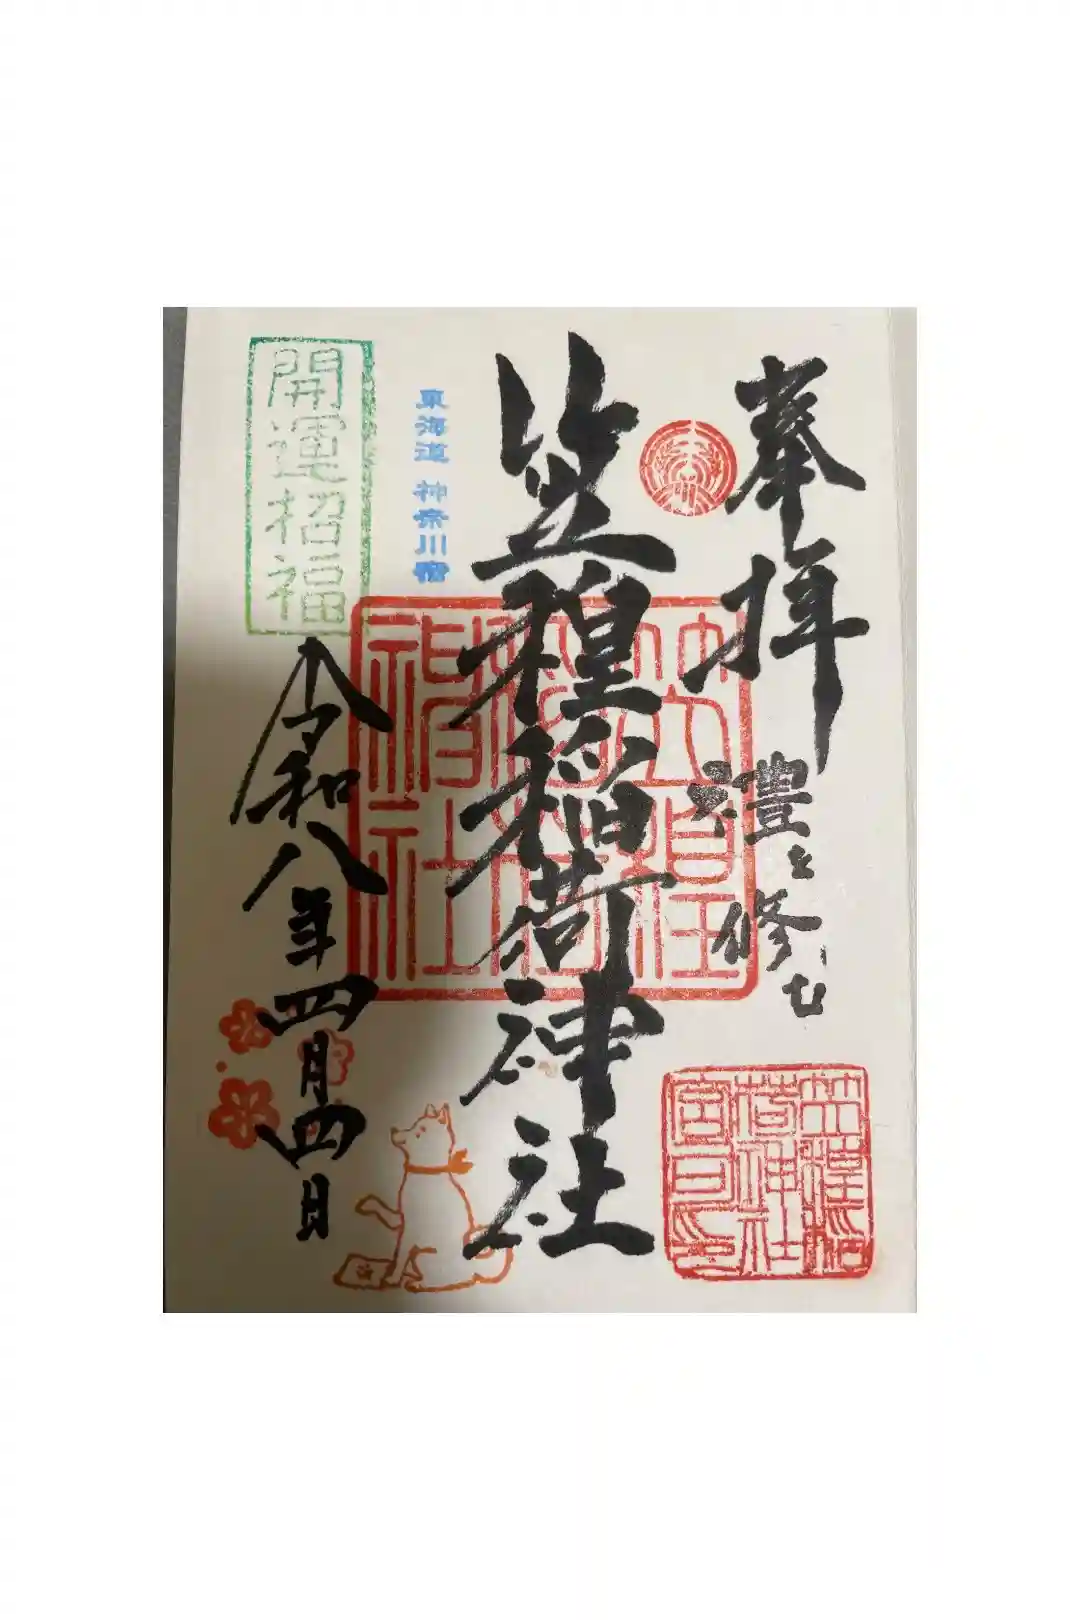 奉拝
禮を修む
笠䅣稲荷神社
東海道 神奈川宿
開運招福
令和八年四月四日
笠䅣稲荷神社
笠䅣稲荷神社宮司之印